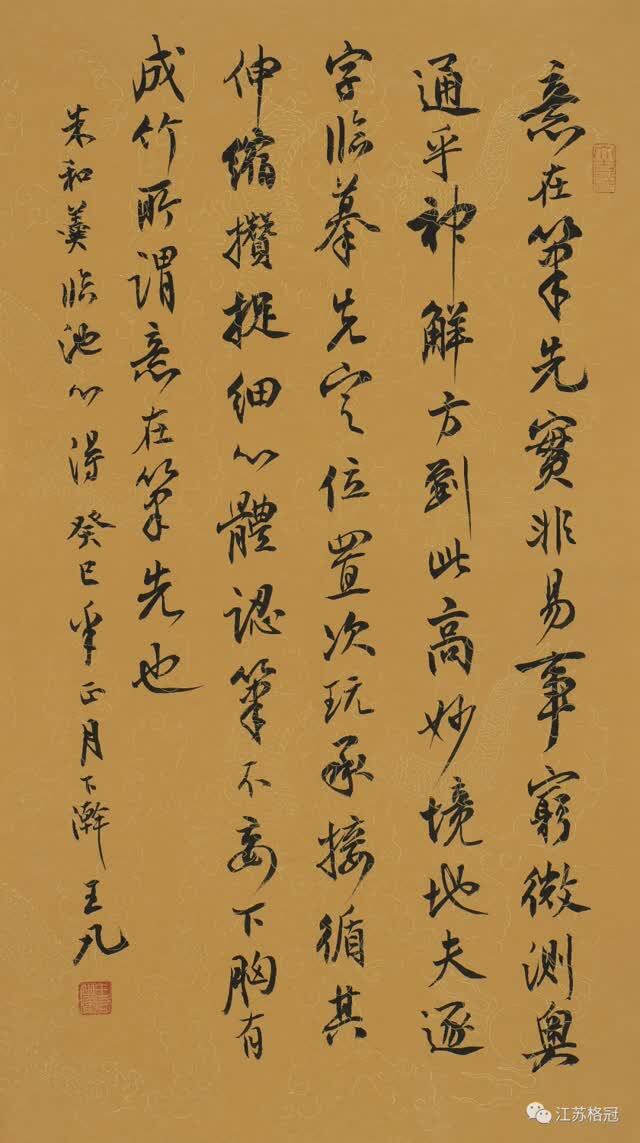 意在筆先實非易事窮微測奧
通乎神解方到此高妙境地夫逐
字臨摹先定位置次玩承接循其
伸縮攢捉細心體認筆不妄下胸有
成竹所謂意在筆先也
朱和羹臨池心得癸巳年正月下澣王凡
江苏格冠